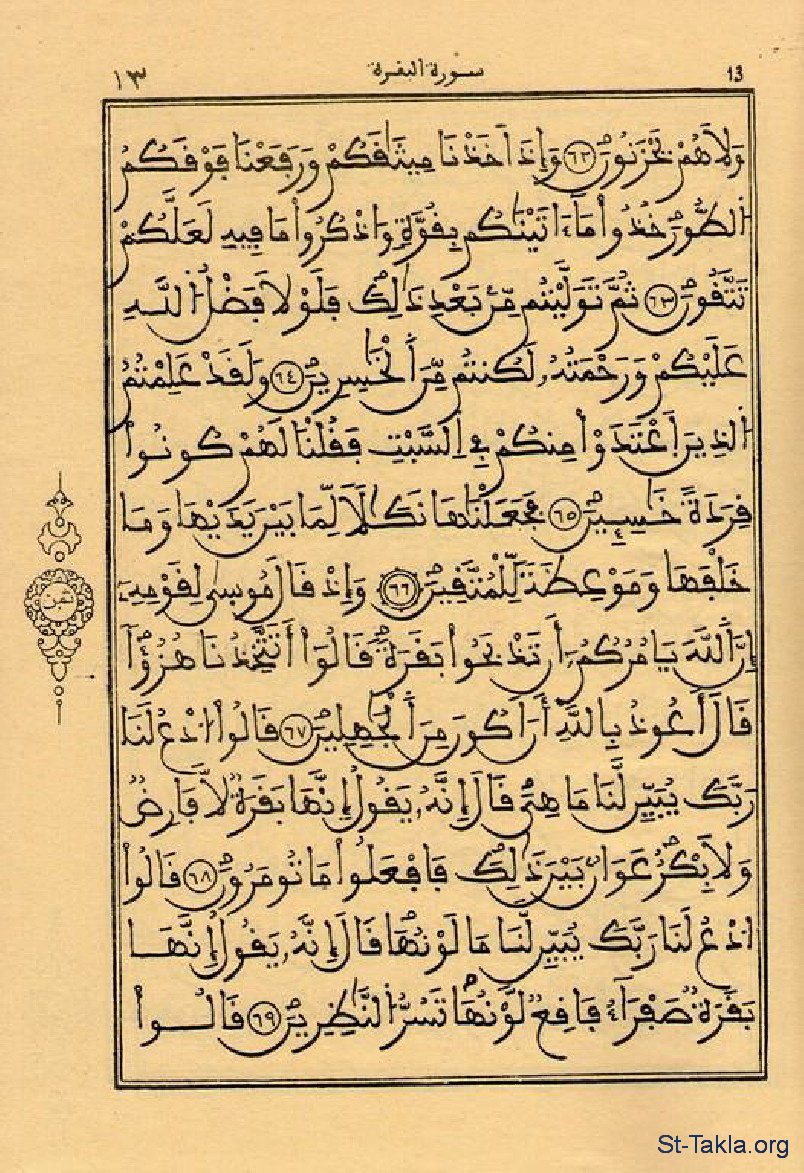 13 سورة البقرة ١٣
وَلَا هُمْ يَحْزَنُونَ ٦٢ وَإِذَ اَخَذْنَا مِيثَٰقَكُمْ وَرَفَعْنَا فَوْقَكُمُ
اُ۬لطُّورَ خُذُواْ مَآ ءَاتَيْنَٰكُم بِقُوَّةٍ وَاذْكُرُواْ مَا فِيهِ لَعَلَّكُمْ
تَتَّقُونَ ٦٣ ثُمَّ تَوَلَّيْتُم مِّنۢ بَعْدِ ذَٰلِكَ فَلَوْلَا فَضْلُ اُ۬للَّهِ
عَلَيْكُمْ وَرَحْمَتُهُۥ لَكُنتُم مِّنَ اَ۬لْخَٰسِرِينَ ٦٤ وَلَقَدْ عَلِمْتُمُ
اُ۬لذِينَ اَ۪عْتَدَوْاْ مِنكُمْ فِے اِ۬لسَّبْتِ فَقُلْنَا لَهُمْ كُونُواْ
قِرَدَةً خَٰسِـِٕينَ ٦٥ فَجَعَلْنَٰهَا نَكَٰلًا لِّمَا بَيْنَ يَدَيْهَا وَمَا
خَلْفَهَا وَمَوْعِظَةً لِّلْمُتَّقِينَ ٦٦ وَإِذْ قَالَ مُوسَىٰ لِقَوْمِهِۦٓ
إِنَّ اَ۬للَّهَ يَامُرُكُمُۥٓ أَن تَذْبَحُواْ بَقَرَةً قَالُوٓاْ أَتَتَّخِذُنَا هُزُؤًا
قَالَ أَعُوذُ بِاللَّهِ أَنَ اَكُونَ مِنَ اَ۬لْجَٰهِلِينَ ٦٧ قَالُواْ اُ۟دْعُ لَنَا
رَبَّكَ يُبَيِّن لَّنَا مَا هِيَ قَالَ إِنَّهُۥ يَقُولُ إِنَّهَا بَقَرَةٌ لَّا فَارِضٌ
وَلَا بِكْرٌ عَوَانٌۢ بَيْنَ ذَٰلِكَ فَافْعَلُواْ مَا تُومَرُونَ ٦٨ قَالُواْ
اُ۟دْعُ لَنَا رَبَّكَ يُبَيِّن لَّنَا مَا لَوْنُهَا قَالَ إِنَّهُۥ يَقُولُ إِنَّهَا
بَقَرَةٌ صَفْرَآءُ فَاقِعٌ لَّوْنُهَا تَسُرُّ اُ۬لنَّٰظِرِينَ ٦٩ قَالُواْ
ثمن
St-Takla.org